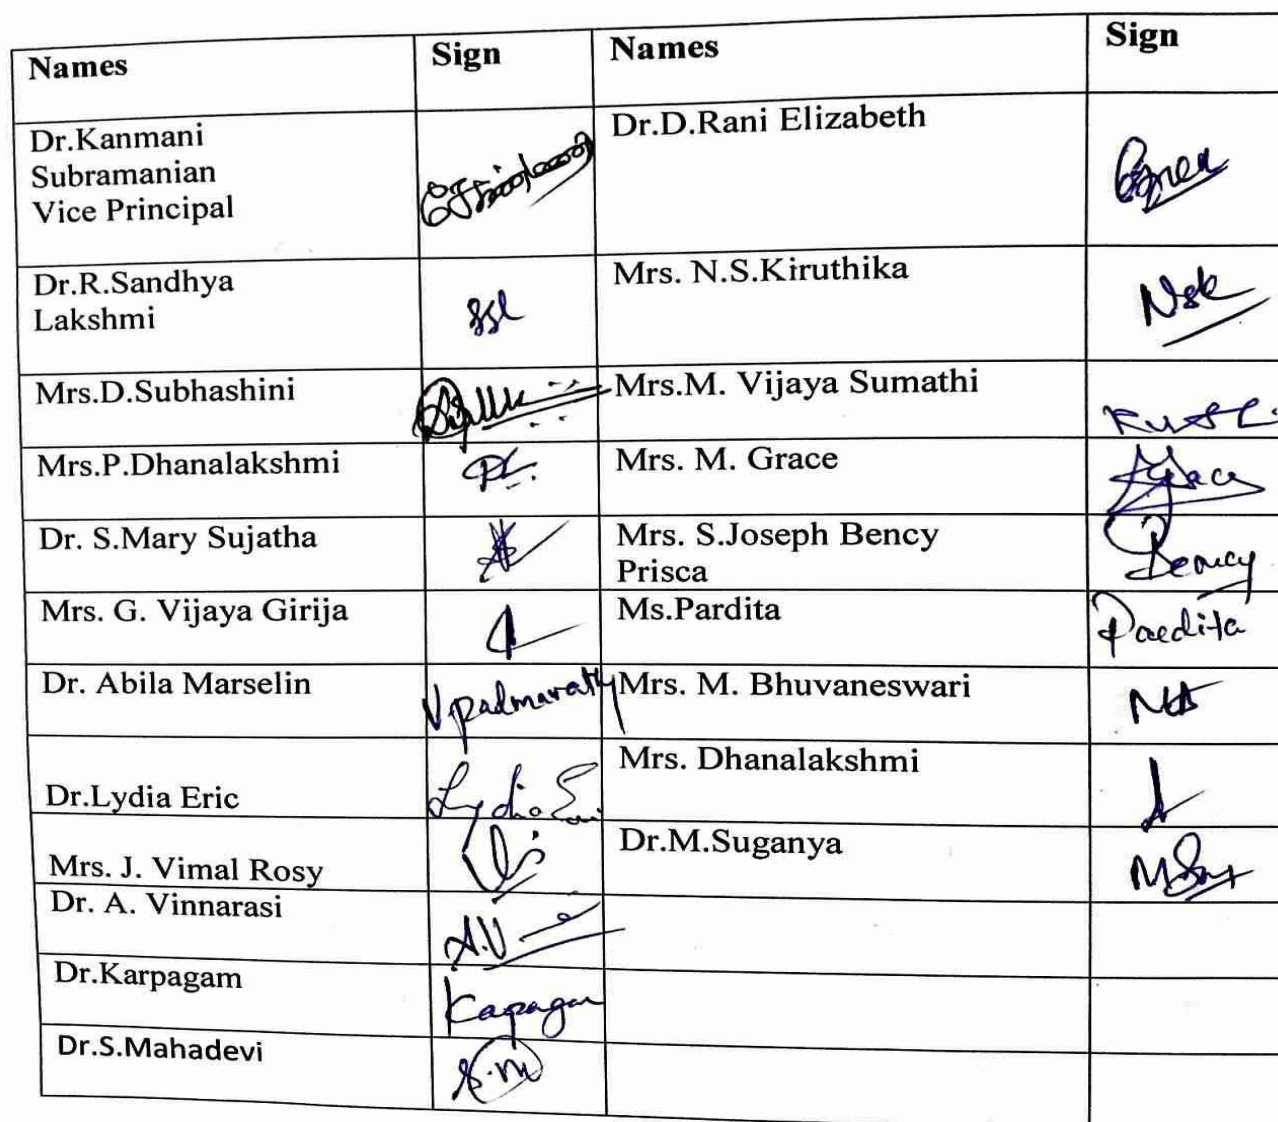 Names Sign Names Sign
Dr.Kanmani
Subramanian
Vice Principal
Dr.D.Rani Elizabeth
Dr.R.Sandhya
Lakshmi
Mrs. N.S.Kiruthika
Nsk
Mrs.D.Subhashini
Mrs.M. Vijaya Sumathi
Mrs.P.Dhanalakshmi
Mrs. M. Grace
Grace
Dr. S.Mary Sujatha
Mrs. S.Joseph Bency
Prisca
Bency
Mrs. G. Vijaya Girija
Ms.Pardita
Pardita
Dr. Abila Marselin
V.padmavathy
Mrs. M. Bhuvaneswari
Dr.Lydia Eric
Lydia
Mrs. Dhanalakshmi
Mrs. J. Vimal Rosy
Dr.M.Suganya
Dr. A. Vinnarasi
A.V
Dr.Karpagam
Dr.S.Mahadevi
S.M